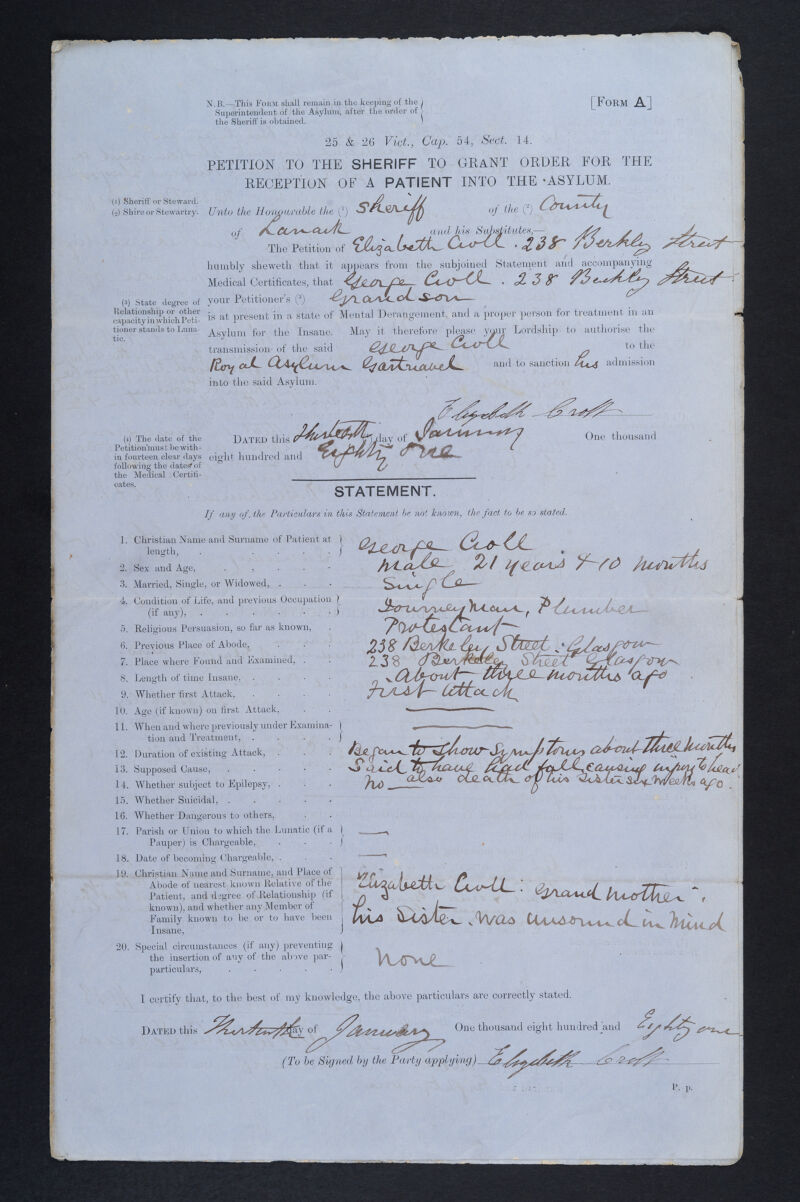 N.B.—This Form shall remain in the keeping of the
Superintendent of the Asylum, after the order of
the Sheriff is obtained.
[Form A]
25 & 26 Vict., Cap. 54, Sect. 14.
PETITION TO THE SHERIFF TO GRANT ORDER FOR THE
RECEPTION OF A PATIENT INTO THE ASYLUM.
(1) Sheriff or Steward.
(2) Shire or Stewartry.
Unto the Honourable the (1) Sheriff of the (2) County
of Lanark and his Substitutes,—
The Petition of Elizabeth Croll . 238 Berkly Street
humbly sheweth that it appears from the subjoined Statement and accompanying
Medical Certificates, that George Croll . 238 Berkly Street
(3) State degree of
Relationship or other
capacity in which Peti-
tioner stands to Luna-
tic.
your Petitioner's (3) Grandson
is at present in a state of Mental Derangement, and a proper person for treatment in an
Asylum for the Insane. May it therefore please your Lordship to authorise the
transmission of the said George Croll to the
Royal Asylum Gartnavel and to sanction his admission
into the said Asylum.
Elizabeth Croll
(4) The date of the
Petition must be with-
in fourteen clear days
following the dates of
the Medical Certifi-
cates.
Dated this Thirteenth day of January One thousand
eight hundred and Eighty One
STATEMENT.
If any of the Particulars in this Statement be not known, the fact to be so stated.
1. Christian Name and Surname of Patient at
length, George Croll
2. Sex and Age, Male 21 years & 10 months
3. Married, Single, or Widowed, Single
4. Condition of Life, and previous Occupation
(if any), Journeyman, Plumber
5. Religious Persuasion, so far as known, Protestant
6. Previous Place of Abode, 238 Berkeley Street : Glasgow
7. Place where Found and Examined, 238 Berkeley Street Glasgow
8. Length of time Insane, About three months ago
9. Whether first Attack, First attack
10. Age (if known) on first Attack,
11. When and where previously under Examina-
tion and Treatment,
12. Duration of existing Attack, Began to show symptoms about three months
13. Supposed Cause, Said to have had fall causing injury to head
also death of his sister six weeks ago.
14. Whether subject to Epilepsy, No
15. Whether Suicidal,
16. Whether Dangerous to others,
17. Parish or Union to which the Lunatic (if a
Pauper) is Chargeable, —
18. Date of becoming Chargeable, —
19. Christian Name and Surname, and Place of
Abode of nearest known Relative of the
Patient, and degree of Relationship (if
known), and whether any Member of
Family known to be or to have been
Insane,
Elizabeth Croll : Grand mother .
his Sister . was unsound in mind
20. Special circumstances (if any) preventing
the insertion of any of the above par-
particulars, None
I certify that, to the best of my knowledge, the above particulars are correctly stated.
Dated this Thirteenth day of January One thousand eight hundred and Eighty one
(To be Signed by the Party applying) Elizabeth Croll
P. p.